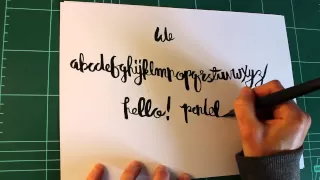 We
abcdefghijklmnopqrstuvwxyz
hello! pentel